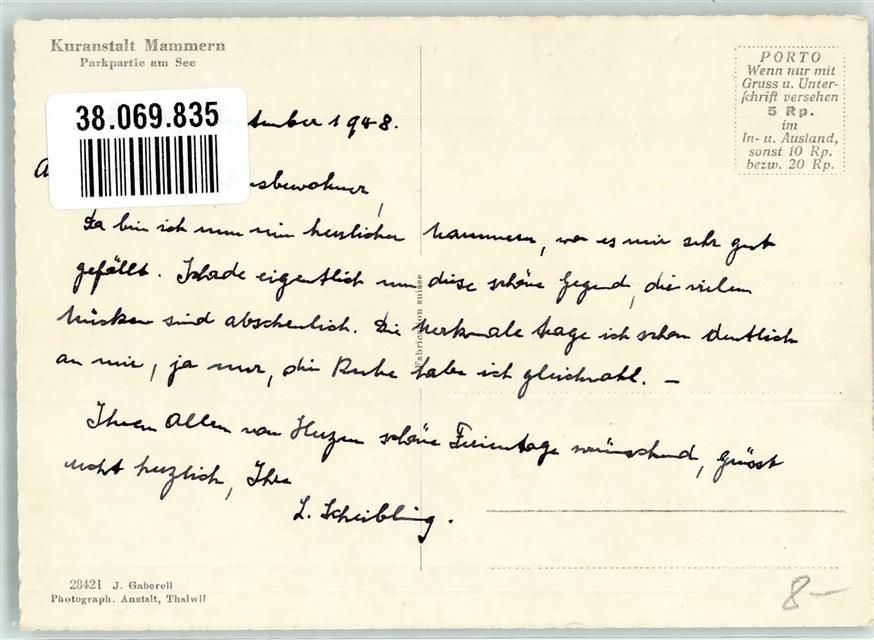 Kuranstalt Mammern
Parkpartie am See
PORTO
Wenn nur mit
Gruss u. Unter-
schrift versehen
5 Rp.
im
In- u. Ausland,
sonst 10 Rp.
bezw. 20 Rp.
38.069.835
ptember 1948.
sbewohner,
Da bin ich nun im herzlichen Mammern, wo es mir sehr gut
gefällt. Schade eigentlich um diese schöne Gegend, die vielen
Mücken sind abscheulich. Die Merkmale trage ich schon deutlich
an mir, ja nur, die Ruhe habe ich gleichwohl. –
Ihnen Allen von Herzen schöne Ferientage wünschend, grüsst
recht herzlich, Ihre
L. Scheibling.
Fabrication suisse
28421 J. Gaberell
Photograph. Anstalt, Thalwil
8–